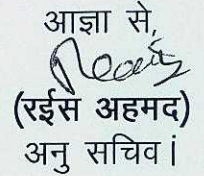 आज्ञा से,
(रईस अहमद)
अनु सचिव।